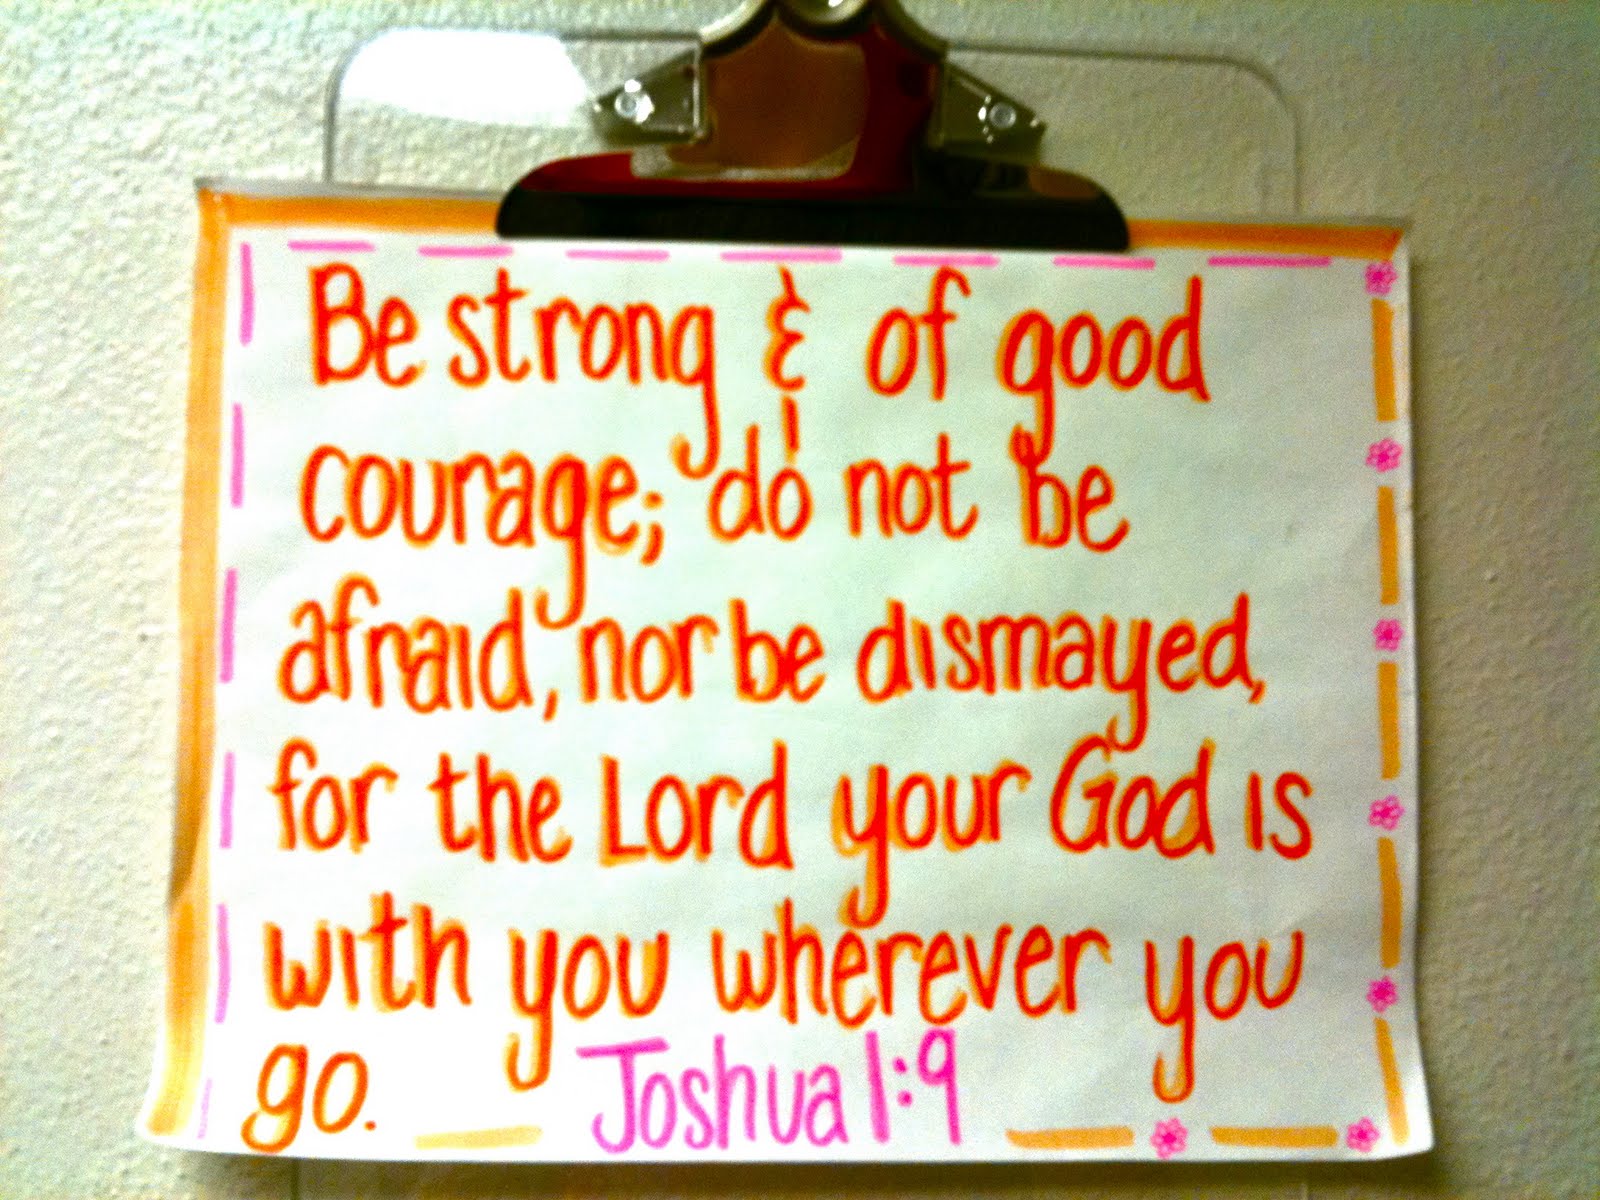 Be strong & of good
courage; do not be
afraid, nor be dismayed,
for the Lord your God is
with you wherever you
go. Joshua 1:9